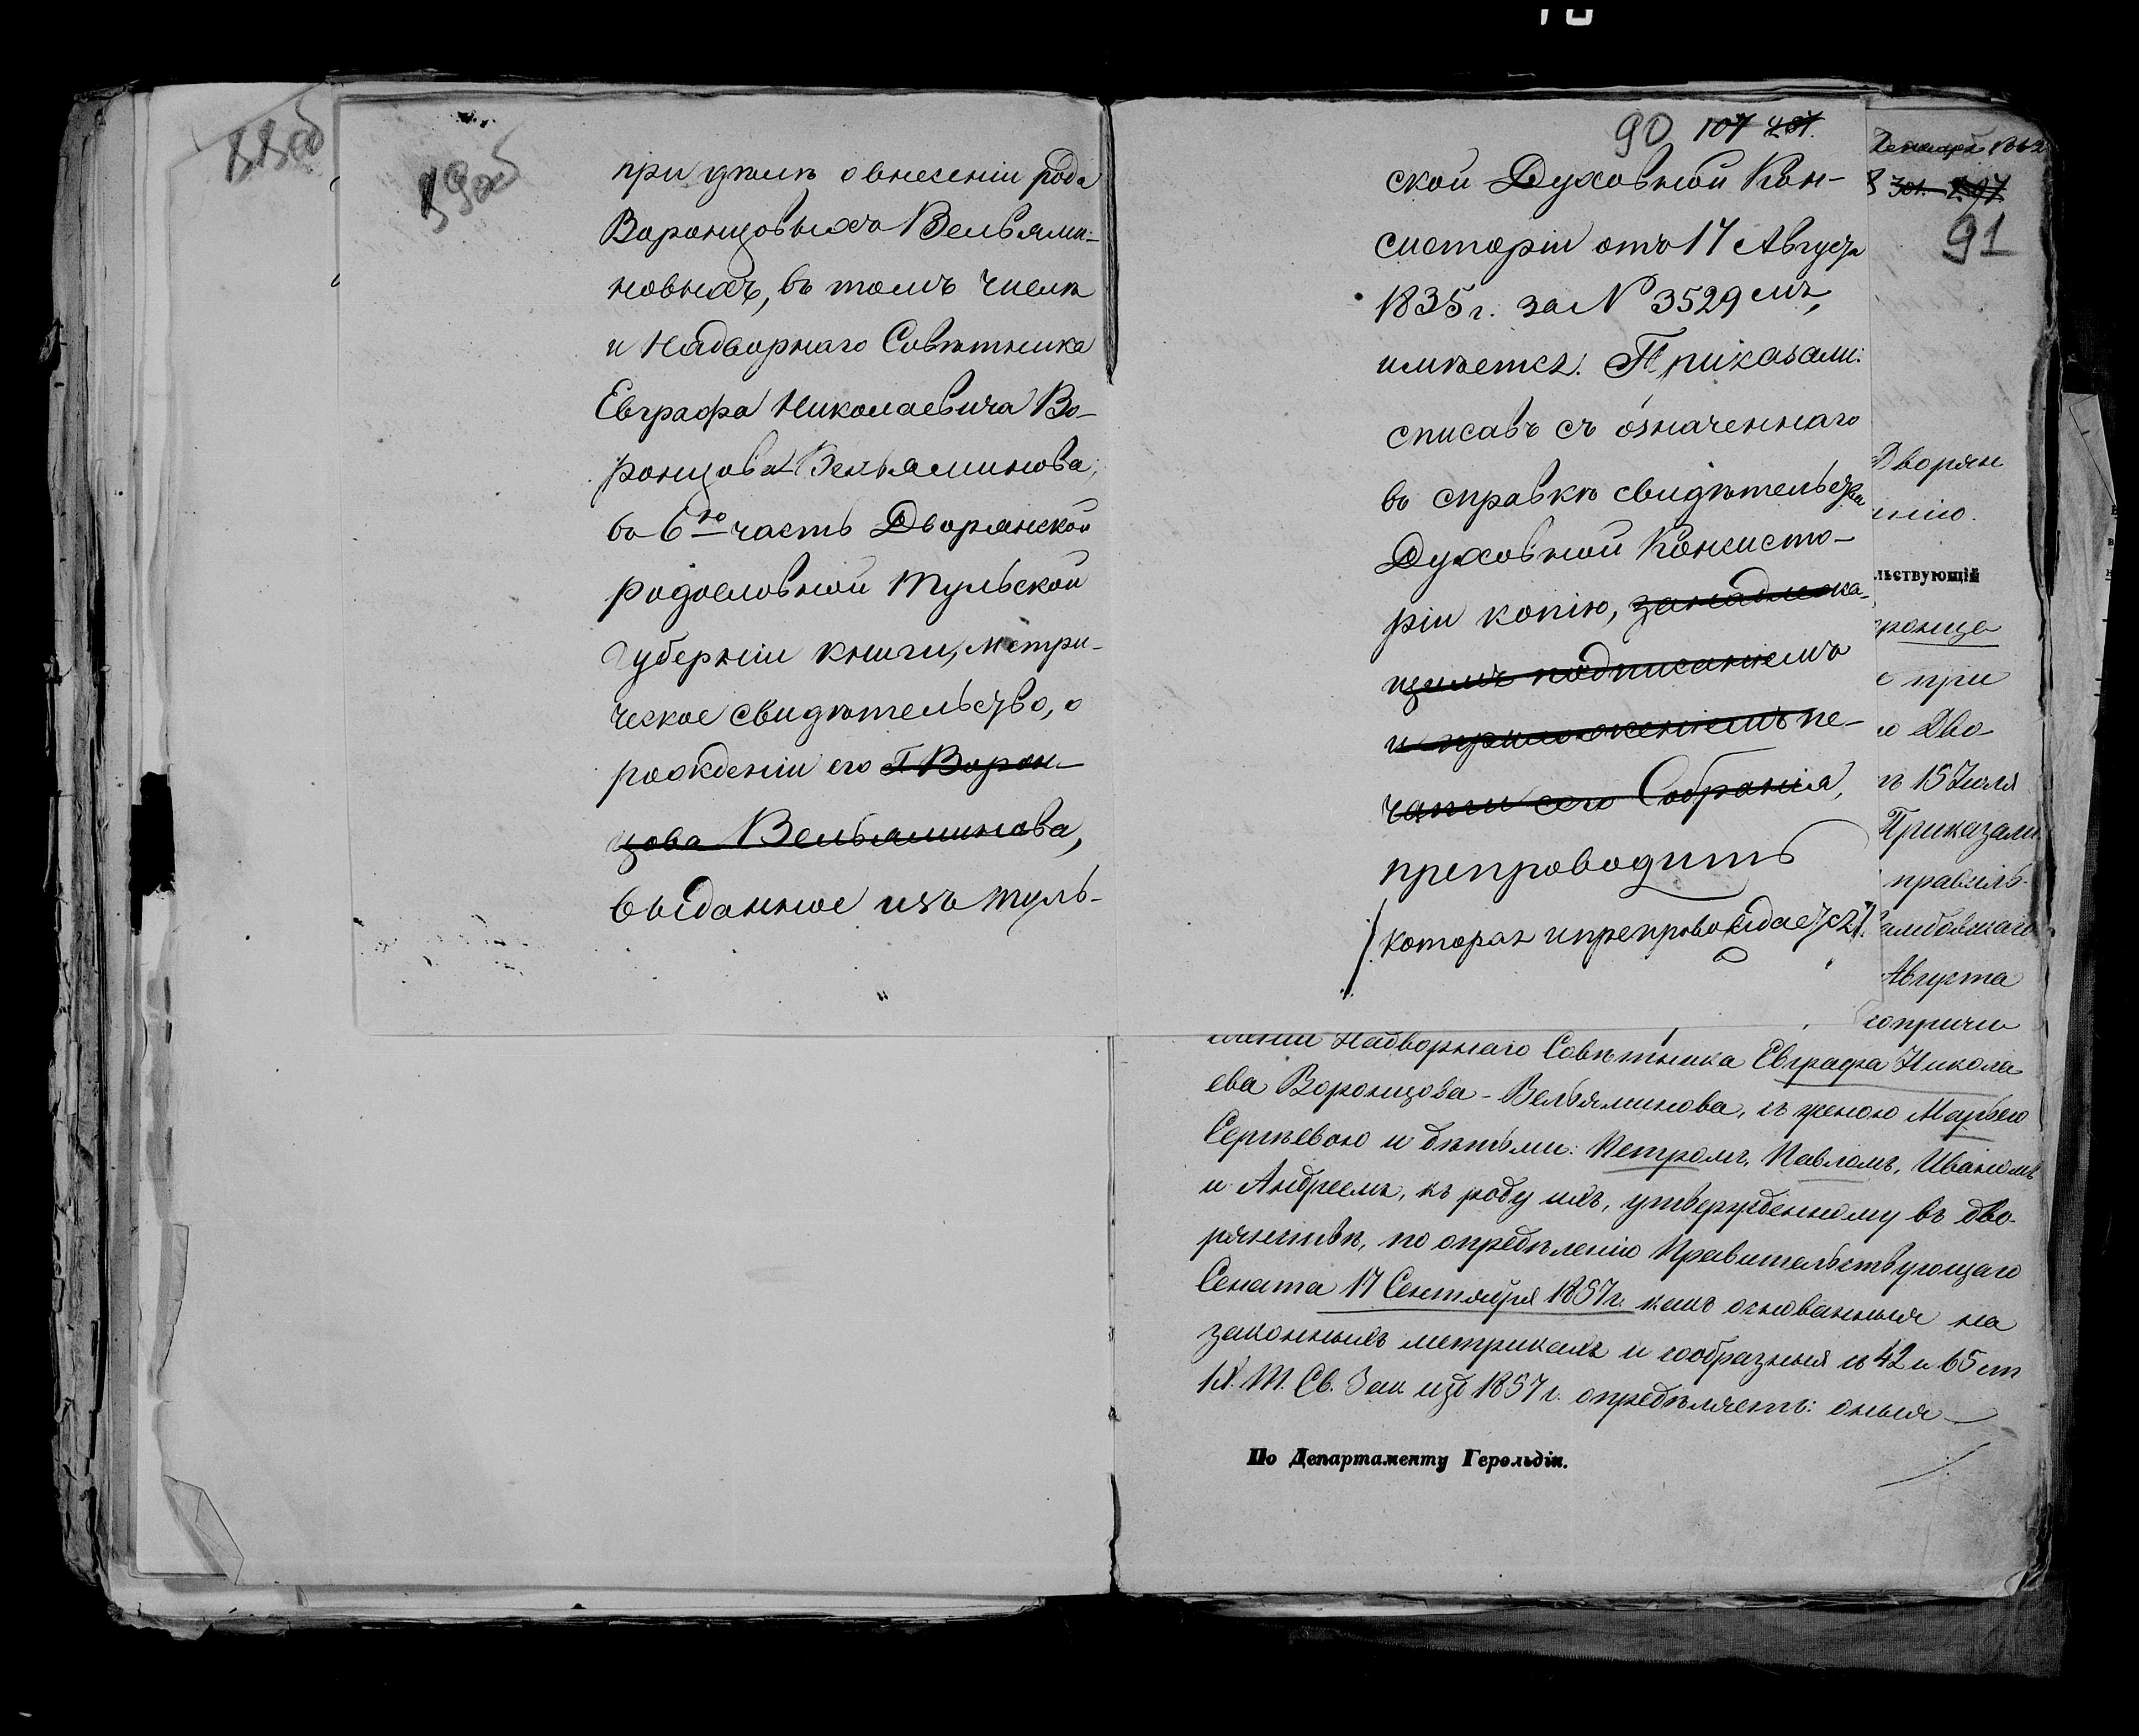 88об
89об
при дѣлѣ о внесеніи рода
Воронцовыхъ Вельями-
новыхъ, въ томъ числѣ
и Надворнаго Совѣтника
Евграфа Николаевича Во-
ронцова Вельяминова,
въ 6ю часть Дворянской
родословной Тульской
Губерніи книги, метри-
ческое свидѣтельство, о
рожденіи его Г. Ворон-
цова Вельяминова,
выданное изъ Туль-
90 107
ской Духовной Кон-
систоріи отъ 17 Августа
1835 г. за N 3529мъ,
имѣется. Приказали:
списавъ съ означеннаго
въ справкѣ свидѣтельства
Духовной Консисто-
ріи копію, за надлежа-
щимъ подписаніемъ
и приложеніемъ пе-
чати сего Собранія,
препроводить
которая и препровождается.
91
Дворян
нію.
льствующій
ронцо
при
Дво
15 Іюля
Приказали
правиль-
Тамбовскаго
Августа
сопричи
сленіи Надворнаго Совѣтника Евграфа Никола
ева Воронцова-Вельяминова, съ женою Марьею
Сергѣевою и дѣтьми: Петромъ, Павломъ, Иваномъ
и Андреемъ, къ роду ихъ, утвержденному въ дво-
рянствѣ, по опредѣленію Правительствующаго
Сената 17 Сентября 1857 г. какъ основанныя на
законныхъ метрикахъ и сообразныя съ 42 и 65 ст
IX. Т. Св. Зак. изд 1857 г. опредѣляетъ: оныя
По Департаменту Герольдіи.